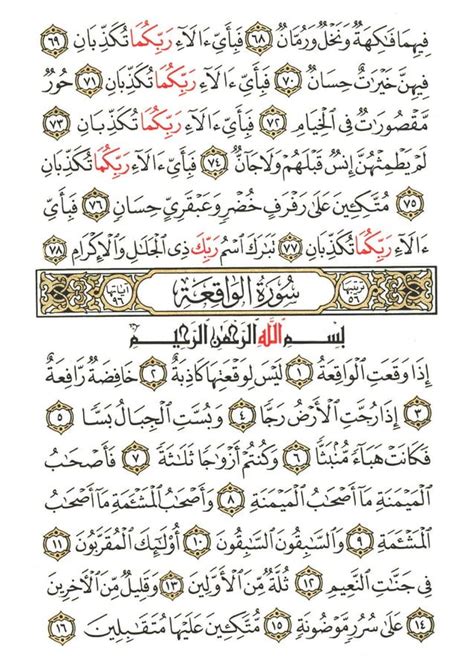 فِيهِمَا فَٰكِهَةٌ وَنَخْلٌ وَرُمَّانٌ ٦٨ فَبِأَيِّ ءَالَآءِ رَبِّكُمَا تُكَذِّبَانِ ٦٩
فِيهِنَّ خَيْرَٰتٌ حِسَانٌ ٧٠ فَبِأَيِّ ءَالَآءِ رَبِّكُمَا تُكَذِّبَانِ ٧١ حُورٌ
مَّقْصُورَٰتٌ فِي ٱلْخِيَامِ ٧٢ فَبِأَيِّ ءَالَآءِ رَبِّكُمَا تُكَذِّبَانِ ٧٣
لَمْ يَطْمِثْهُنَّ إِنسٌ قَبْلَهُمْ وَلَا جَآنٌّ ٧٤ فَبِأَيِّ ءَالَآءِ رَبِّكُمَا تُكَذِّبَانِ
٧٥ مُتَّكِـِٔينَ عَلَىٰ رَفْرَفٍ خُضْرٍ وَعَبْقَرِيٍّ حِسَانٍ ٧٦ فَبِأَيِّ
ءَالَآءِ رَبِّكُمَا تُكَذِّبَانِ ٧٧ تَبَٰرَكَ ٱسْمُ رَبِّكَ ذِي ٱلْجَلَٰلِ وَٱلْإِكْرَامِ ٧٨
ترتيبها ٥٦ سُورَةُ الوَاقِعَة آياتها ٩٦
بِسْمِ ٱللَّهِ ٱلرَّحْمَٰنِ ٱلرَّحِيمِ
إِذَا وَقَعَتِ ٱلْوَاقِعَةُ ١ لَيْسَ لِوَقْعَتِهَا كَاذِبَةٌ ٢ خَافِضَةٌ رَّافِعَةٌ
٣ إِذَا رُجَّتِ ٱلْأَرْضُ رَجًّا ٤ وَبُسَّتِ ٱلْجِبَالُ بَسًّا ٥
فَكَانَتْ هَبَآءً مُّنۢبَثًّا ٦ وَكُنتُمْ أَزْوَٰجًا ثَلَٰثَةً ٧ فَأَصْحَٰبُ
ٱلْمَيْمَنَةِ مَآ أَصْحَٰبُ ٱلْمَيْمَنَةِ ٨ وَأَصْحَٰبُ ٱلْمَشْـَٔمَةِ مَآ أَصْحَٰبُ
ٱلْمَشْـَٔمَةِ ٩ وَٱلسَّٰبِقُونَ ٱلسَّٰبِقُونَ ١٠ أُو۟لَٰٓئِكَ ٱلْمُقَرَّبُونَ ١١
فِي جَنَّٰتِ ٱلنَّعِيمِ ١٢ ثُلَّةٌ مِّنَ ٱلْأَوَّلِينَ ١٣ وَقَلِيلٌ مِّنَ ٱلْآخِرِينَ
١٤ عَلَىٰ سُرُرٍ مَّوْضُونَةٍ ١٥ مُّتَّكِـِٔينَ عَلَيْهَا مُتَقَٰبِلِينَ ١٦